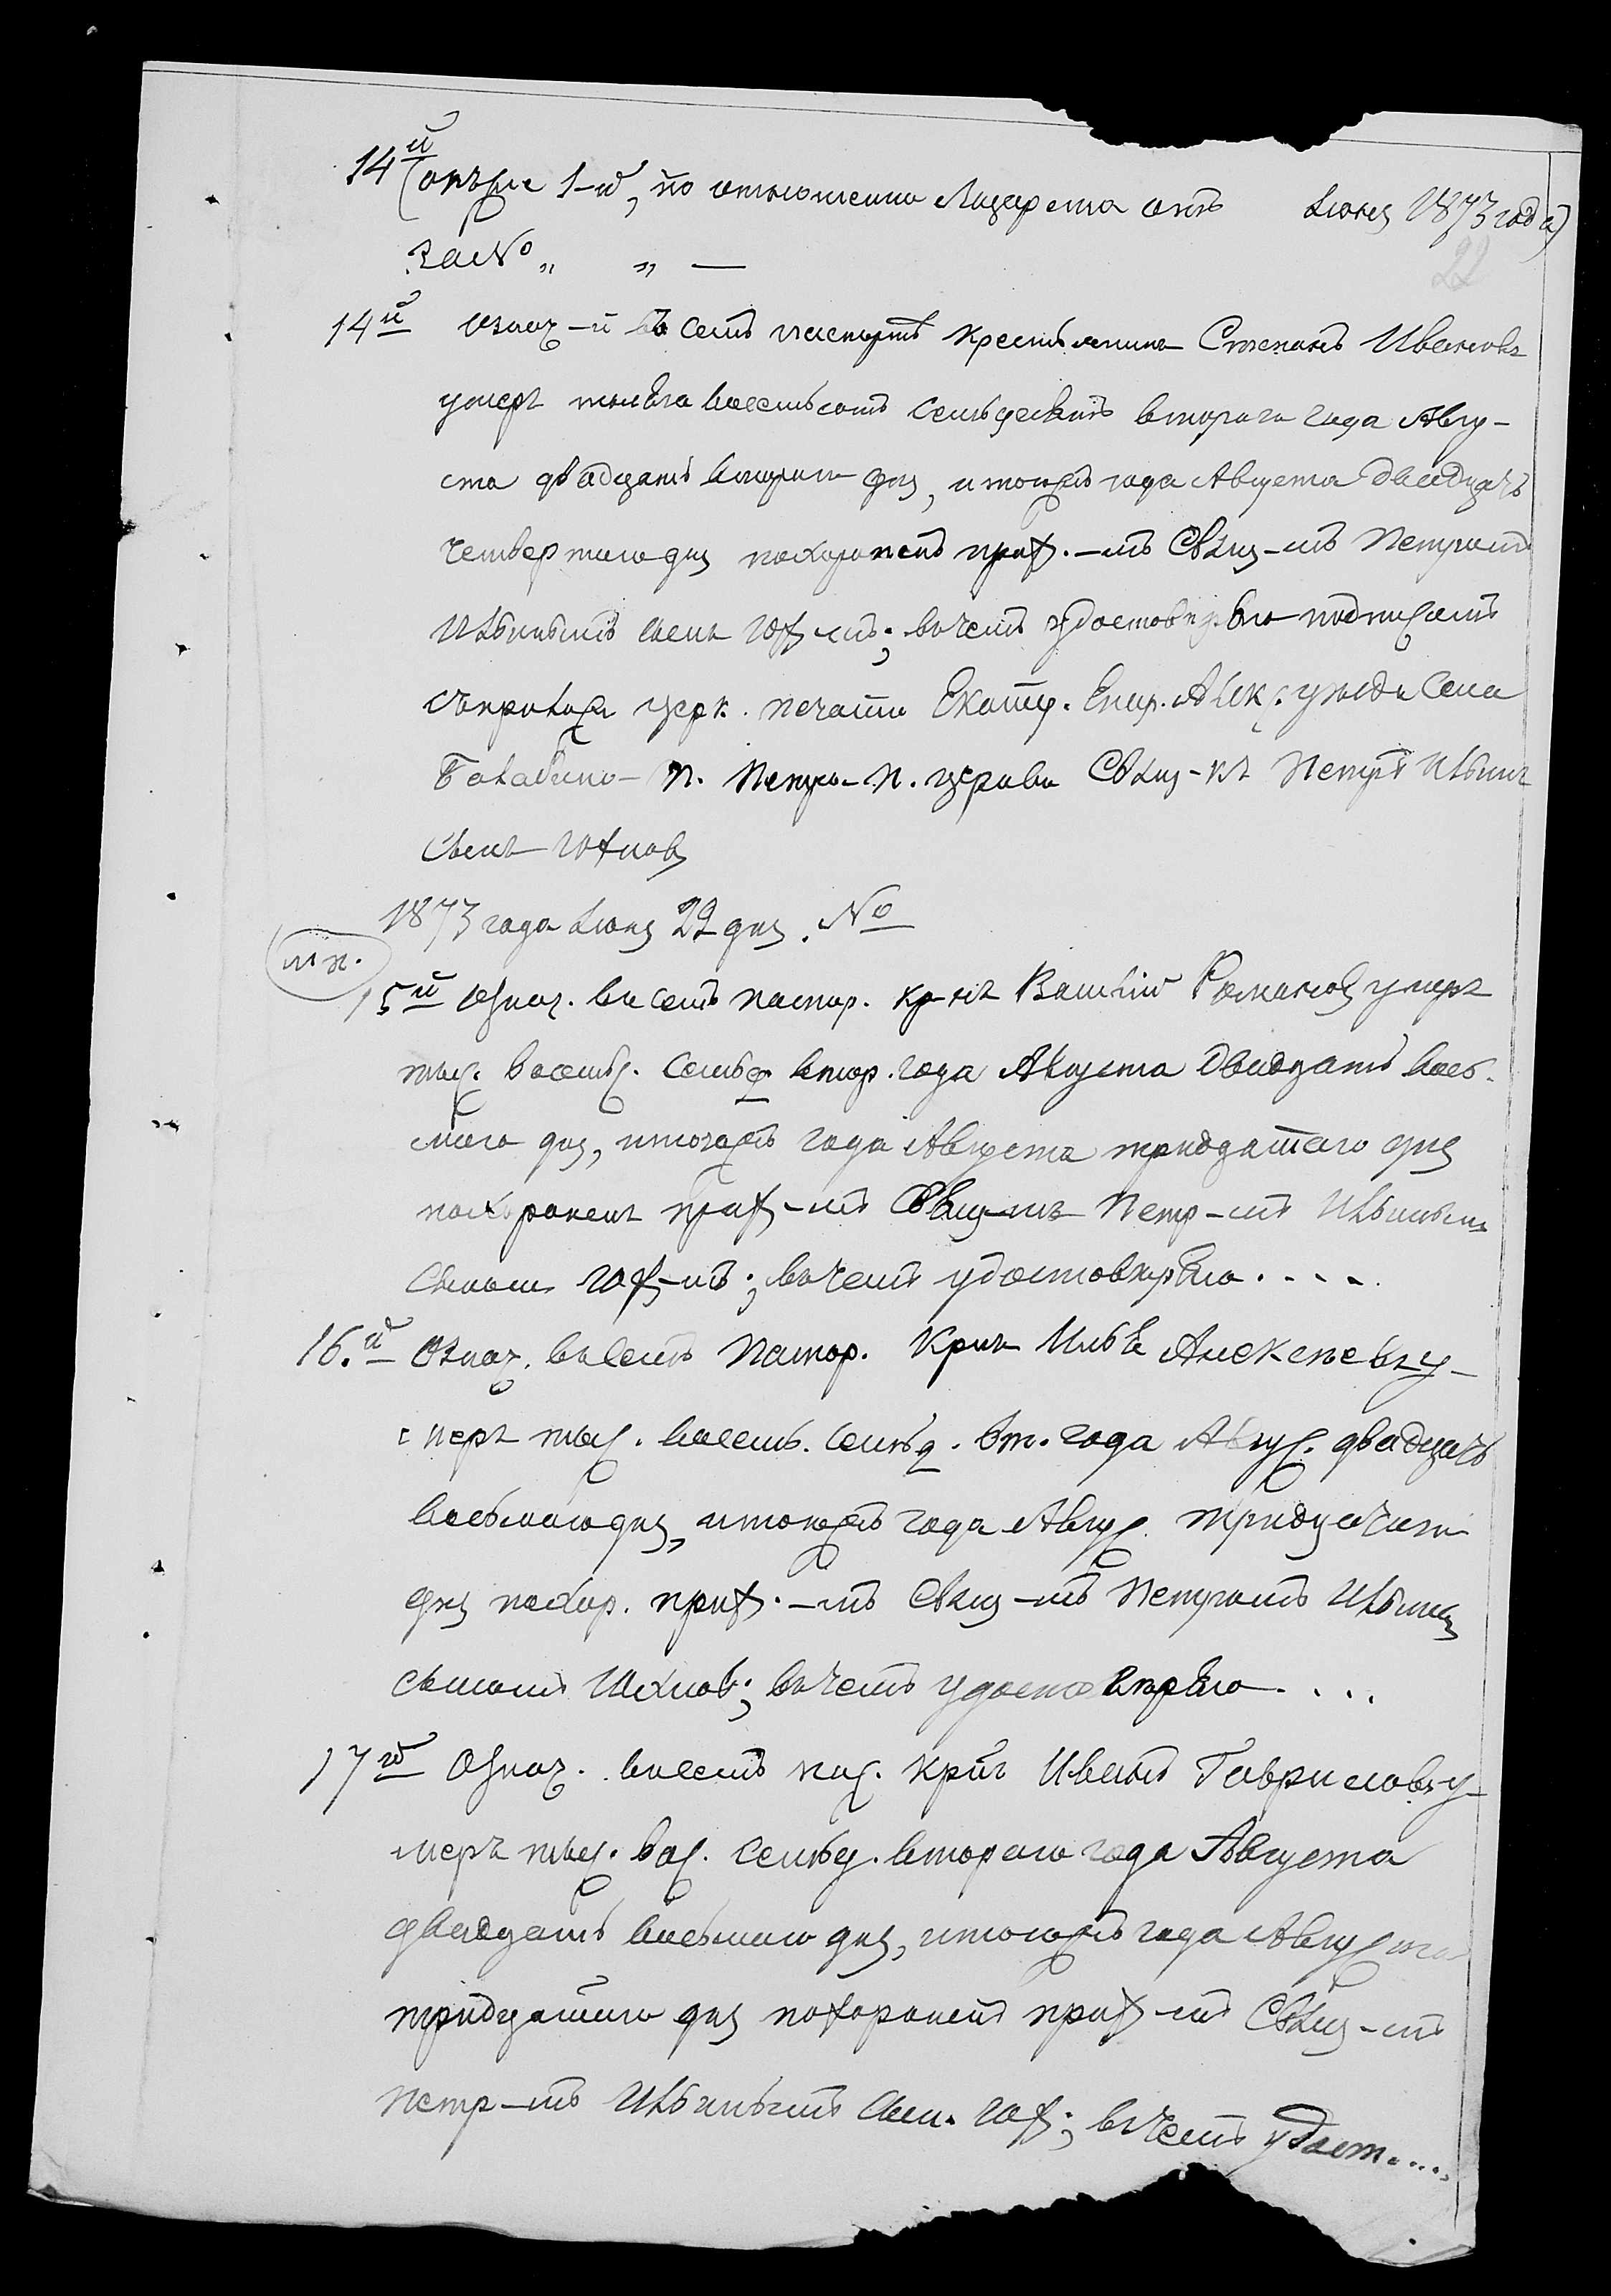 14й
(опъше 1-й, по отношению Лазарета отъ Июня 1873 года)
За № " " —
22
14й Означ-й въ семъ паспортѣ крестьянинъ Степанъ Ивановъ
умеръ тысяча восемьсотъ семьдесятъ втораго года Авгу-
ста двадцать втораго дня, и тогожъ года Августа двадцать
четвертаго дня похороненъ прих.-мъ Свящ-мъ Петромъ
Ильинымъ сыномъ; въ чемъ удостовѣряю подписомъ
съ прилож. церк. печати Екатер. Епар. Алек. уѣзда Села
Петро-П. церкви Свящ-къ Петръ Ильинъ
сынъ
1873 года Июня 22 дня. №
М.П.
15й Означ. въ семъ паспор. кр-нъ Василій Романовъ умеръ
тыс. восемьс. семьд. втор. года Августа двадцать вось-
маго дня, и тогожъ года Августа тридцатаго дня
похороненъ прих-мъ Свящ-мъ Петр-мъ Ильинымъ
сыномъ; въ чемъ удостовѣряю.....
16.й Означ. въ семъ паспор. кр-нъ Илья Алексѣевъ у-
меръ тыс. восемь. семьд. вт. года Авгус. двадцать
восьмаго дня, и тогожъ года Авгус. тридцатаго
дня похор. прих.-мъ Свящ-мъ Петромъ Ильинымъ
сыномъ; въ чемъ удостовѣряю....
17й Означ. въ семъ пас. кр-нъ Иванъ Гавриловъ у-
меръ тыс. вос. семьд. втораго года Августа
двадцать восьмаго дня, и тогожъ года Августа
тридцатаго дня похороненъ прих-мъ Свящ-мъ
Петр-мъ Ильинымъ сын.; въ чемъ удост.....